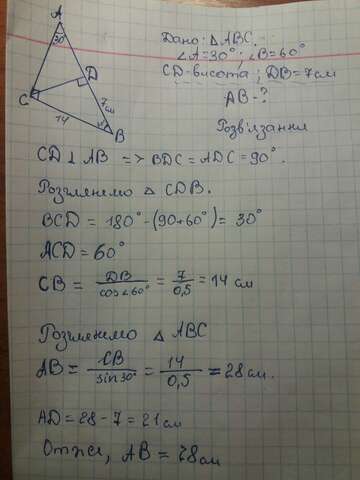 A
30°
D
7см
C
14
B
Дано: △ABC.
∠A=30°; ∠B=60°
CD-висота; DB=7см
AB-?
Розв'язання
CD⊥AB => BDC=ADC=90°.
Розглянемо △ CDB.
BCD = 180°-(90+60°)= 30°
ACD=60°
CB = DB/cos∠60° = 7/0,5 = 14 см
Розглянемо △ ABC
AB = CB/sin30° = 14/0,5 = 28см.
AD=28-7=21см
Отже, AB = 28см